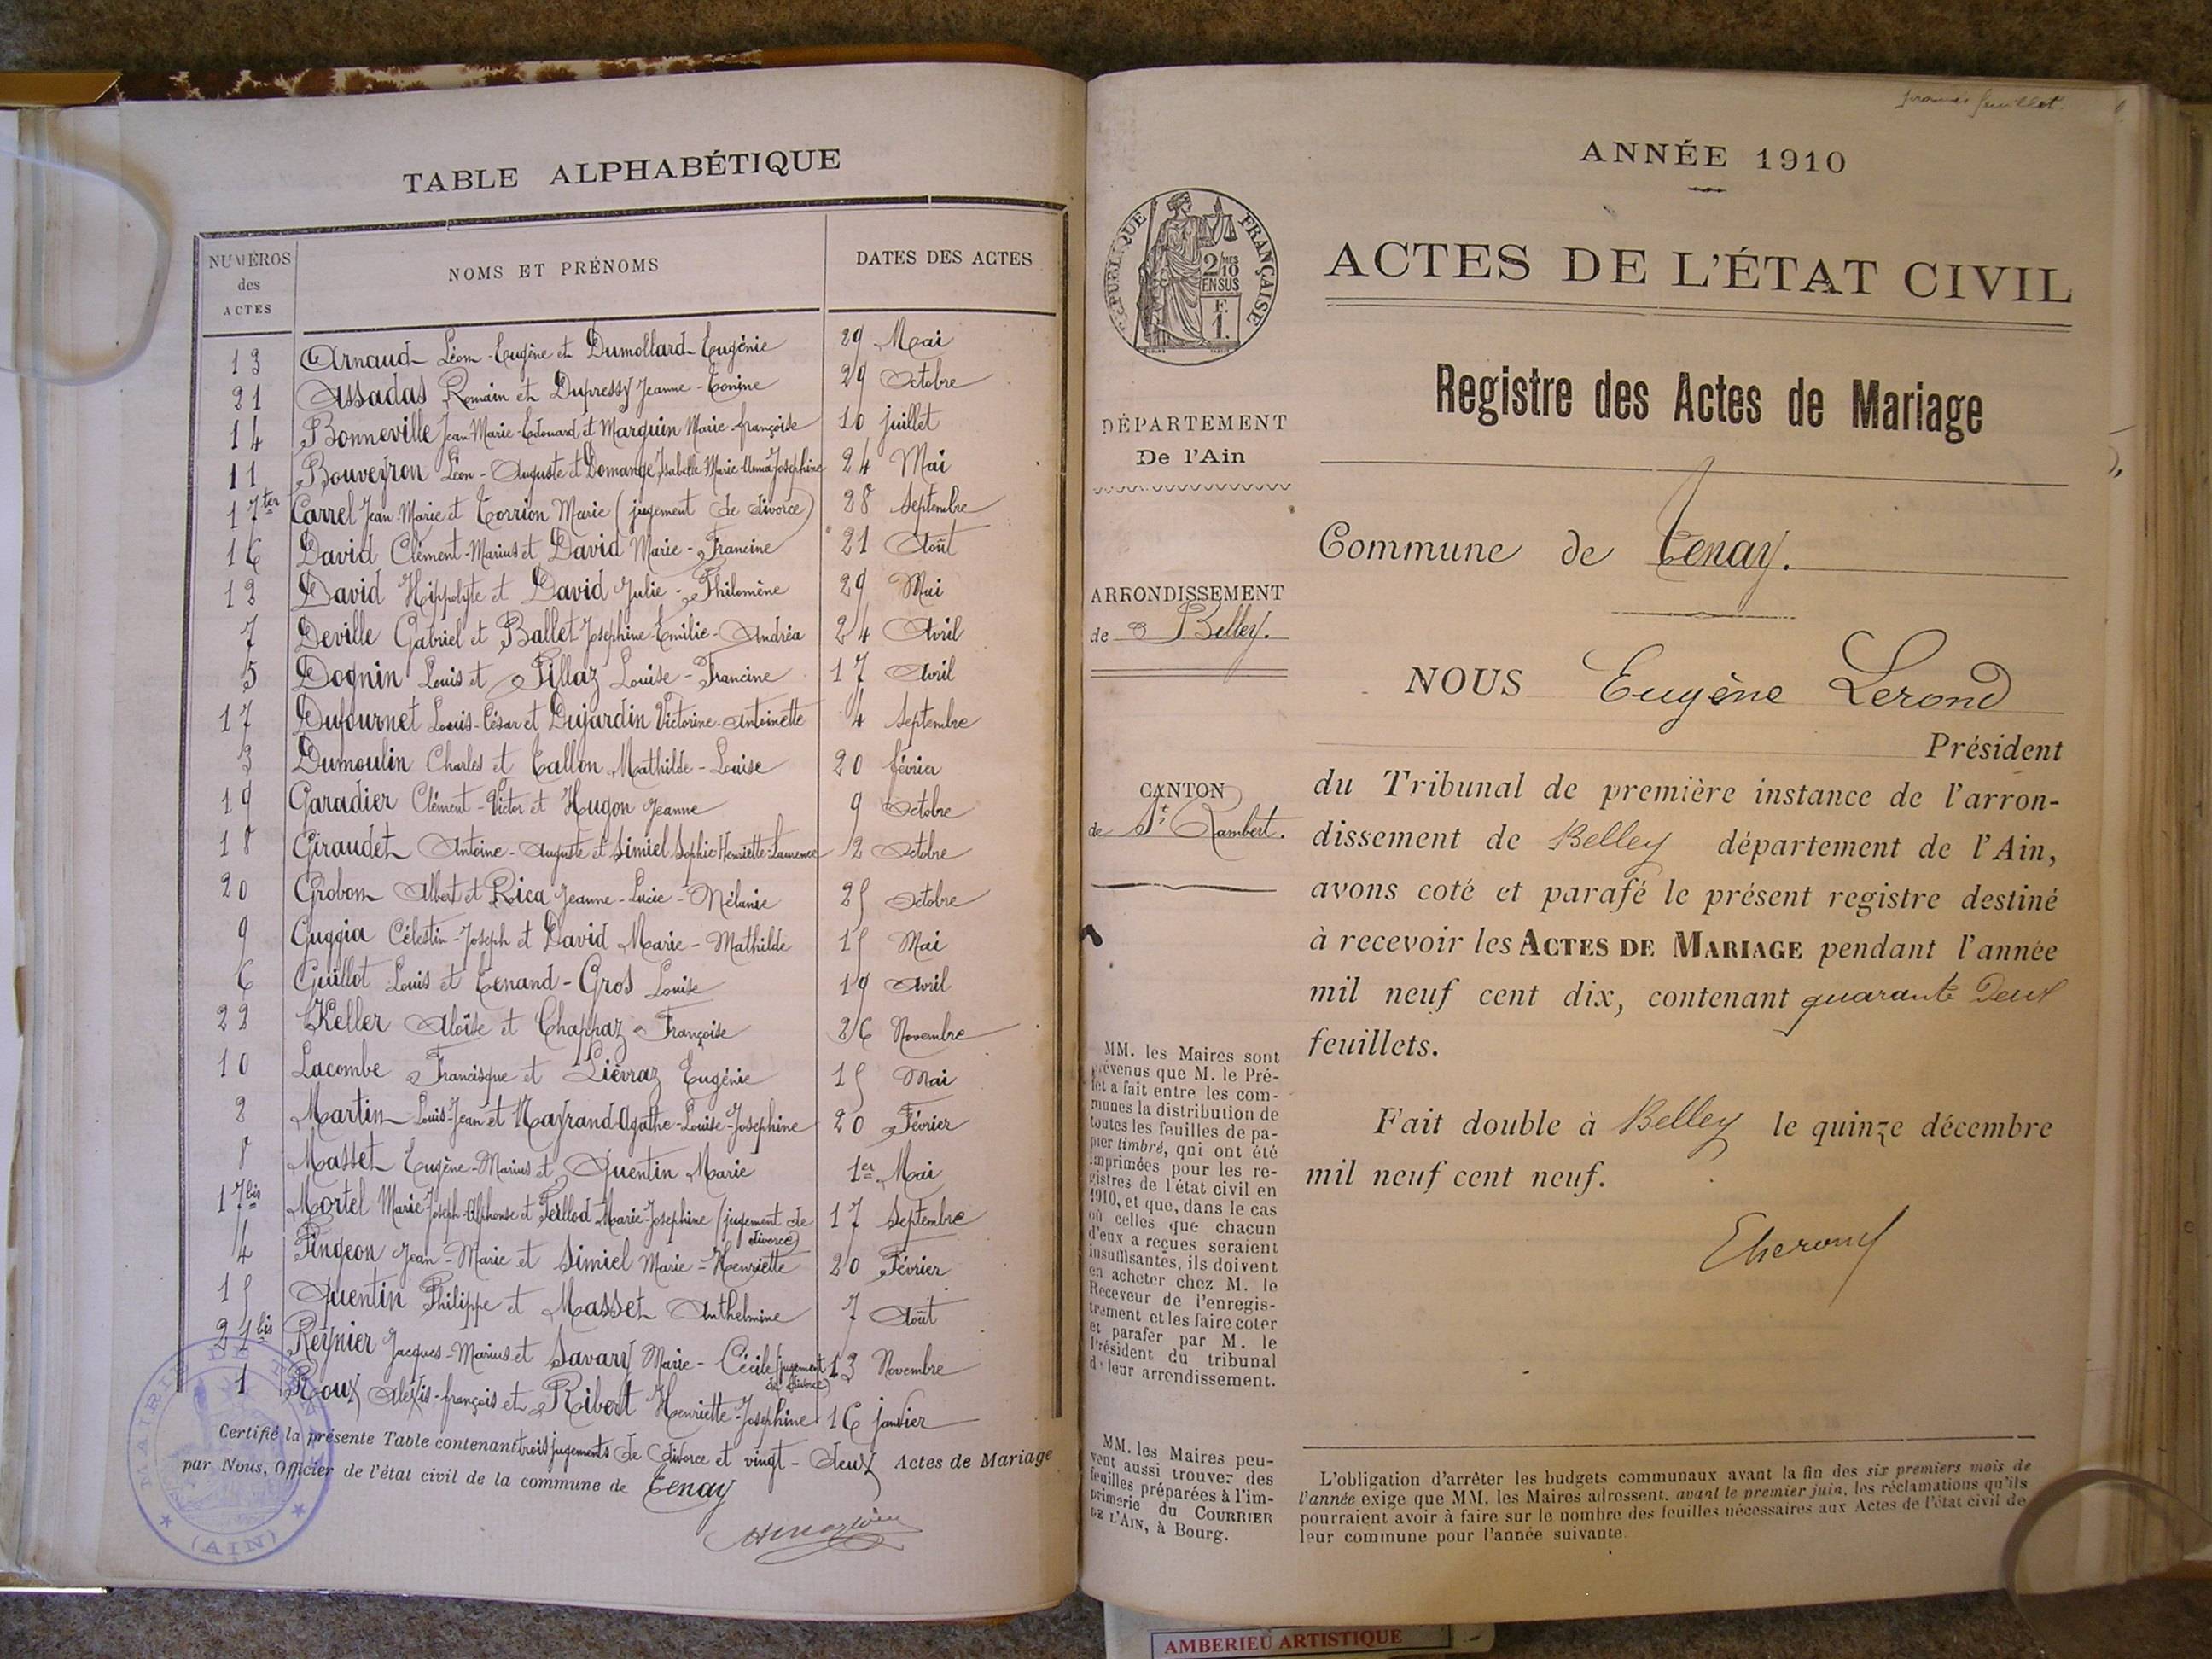 TABLE ALPHABÉTIQUE
NUMÉROS des ACTES
NOMS ET PRÉNOMS
DATES DES ACTES
13 Arnaud Léon-Eugène et Dumollard Eugénie 29 Mai
21 Assadas Romain et Dupressy Jeanne-Tonine 29 Octobre
14 Bonneville Jean-Marie-Edouard et Marquin Marie-françoise 10 juillet
11 Bouveyron Léon-Auguste et Domange Isabelle Marie Anna Josephine 24 Mai
17ter Carrel Jean-Marie et Torrion Marie (jugement de divorce) 28 Septembre
16 David Clément-Marius et David Marie-Francine 21 Août
12 David Hippolyte et David Julie-Philomène 29 Mai
7 Deville Gabriel et Ballet Josephine-Emilie-Andréa 24 Avril
5 Dognin Louis et Pillaz Louise-Francine 17 Avril
17 Dufournet Louis-César et Dujardin Victorine-Antoinette 4 Septembre
3 Dumoulin Charles et Tallon Mathilde-Louise 20 février
19 Garadier Clément-Victor et Hugon Jeanne 9 Octobre
18 Giraudet Antoine-Auguste et Simiel Sophie Henriette-Laurence 2 Octobre
20 Grobon Albert et Rica Jeanne-Lucie-Mélanie 25 Octobre
9 Guggia Célestin-Joseph et David Marie-Mathilde 15 Mai
6 Guillot Louis et Tenand-Gros Louise 19 Avril
22 Keller Aloïse et Chappaz Françoise 26 Novembre
10 Lacombe Francisque et Lièvraz Eugénie 15 Mai
2 Martin Louis-Jean et Mayrand Agathe-Louise-Josephine 20 Février
8 Masset Eugène-Marius et Quentin Marie 1er Mai
17bis Mortel Marie-Joseph-Alphonse et Perllod Marie-Josephine (jugement de divorce) 17 Septembre
4 Pingeon Jean-Marie et Simiel Marie-Henriette 20 Février
15 Quentin Philippe et Masset Anthelmine 7 Août
21bis Reynier Jacques-Marius et Savary Marie-Cécile (jugement de divorce) 13 Novembre
1 Roux Alexis-françois et Ribert Henriette-Josephine 16 janvier
Certifié la présente Table contenant trois jugements de divorce et vingt-deux Actes de Mariage
par Nous, Officier de l'état civil de la commune de Tenay
MAIRIE DE
(AIN)
premier feuillet.
ANNÉE 1910
ACTES DE L'ÉTAT CIVIL
Registre des Actes de Mariage
RÉPUBLIQUE FRANÇAISE
2/10MES
EN SUS
F.
1.
DÉPARTEMENT
De l'Ain
ARRONDISSEMENT
de Belley.
CANTON
de St Rambert.
MM. les Maires sont
prévenus que M. le Pré-
fet a fait entre les com-
munes la distribution de
toutes les feuilles de pa-
pier timbré, qui ont été
imprimées pour les re-
gistres de l'état civil en
1910, et que, dans le cas
où celles que chacun
d'eux a reçues seraient
insuffisantes, ils doivent
en acheter chez M. le
Receveur de l'enregis-
trement et les faire coter
et parafer par M. le
Président du tribunal
de leur arrondissement.
MM. les Maires peu-
vent aussi trouver des
feuilles préparées à l'im-
primerie du COURRIER
DE L'AIN, à Bourg.
Commune de Tenay.
NOUS Eugène Lerond
Président
du Tribunal de première instance de l'arron-
dissement de Belley département de l'Ain,
avons coté et parafé le présent registre destiné
à recevoir les ACTES DE MARIAGE pendant l'année
mil neuf cent dix, contenant quarante Deux
feuillets.
Fait double à Belley le quinze décembre
mil neuf cent neuf.
L'obligation d'arrêter les budgets communaux avant la fin des six premiers mois de
l'année exige que MM. les Maires adressent, avant le premier juin, les réclamations qu'ils
pourraient avoir à faire sur le nombre des feuilles nécessaires aux Actes de l'état civil de
leur commune pour l'année suivante.
AMBERIEU ARTISTIQUE